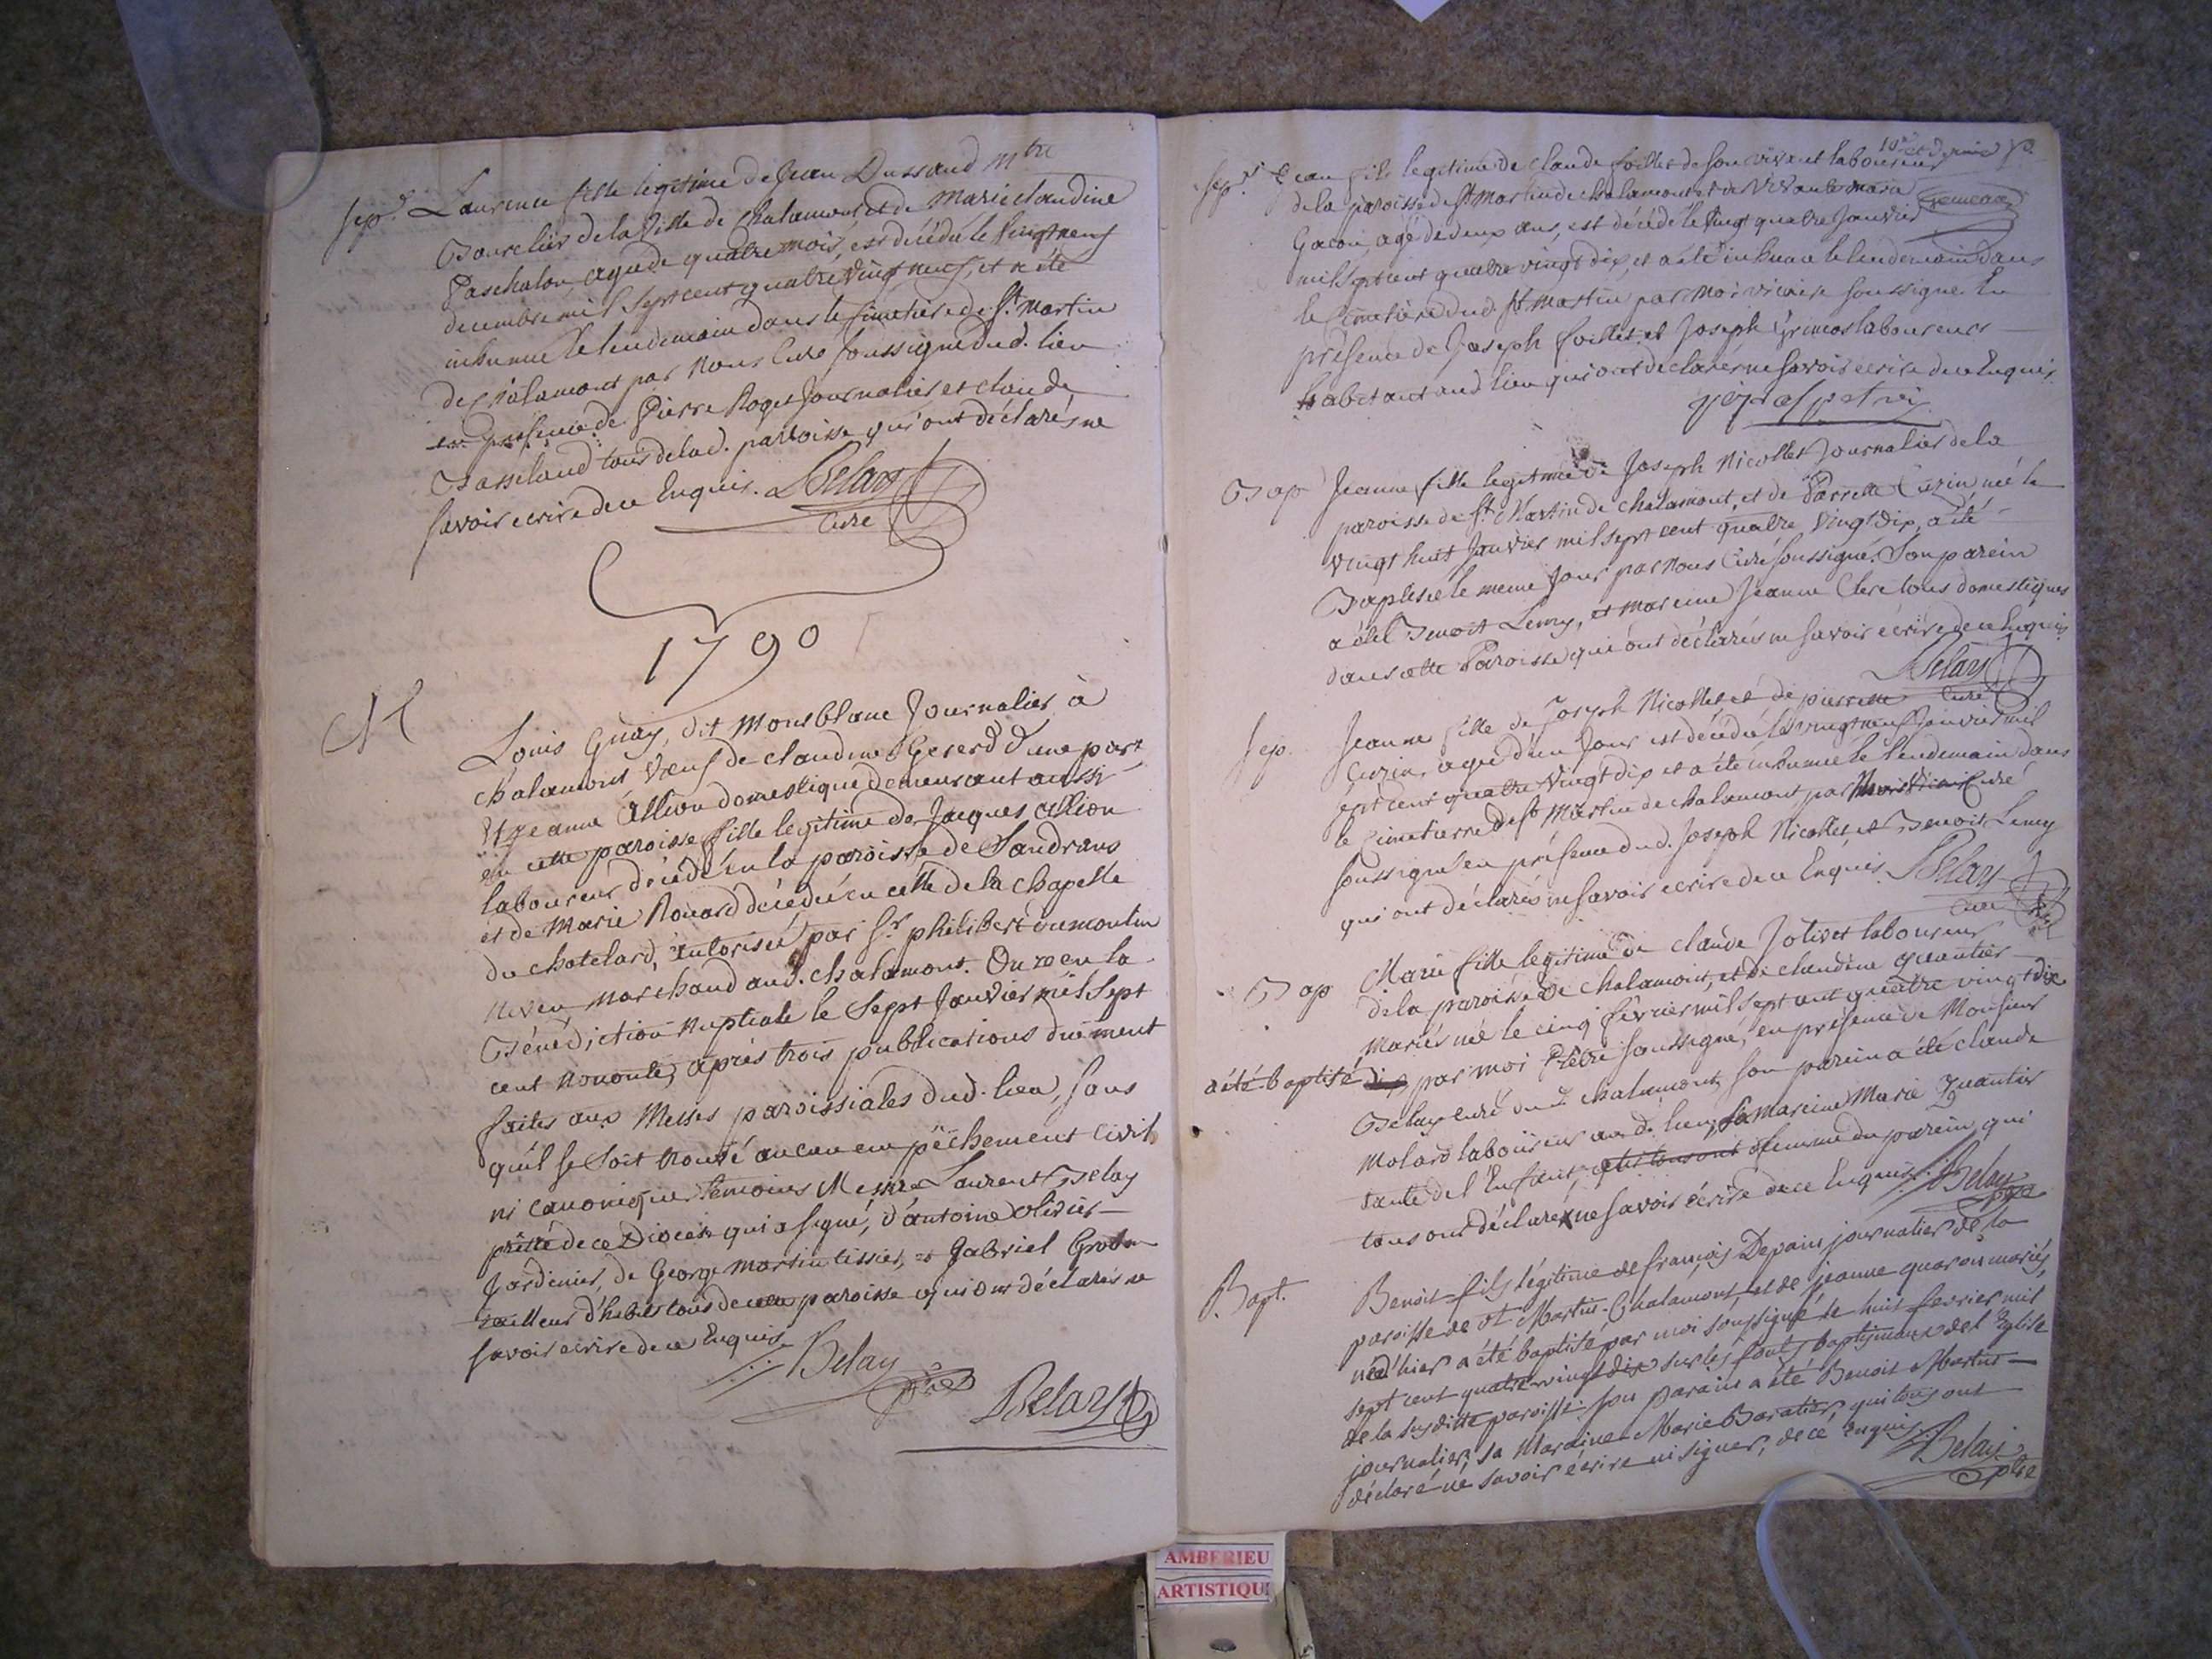 Sep.r Laurence fille legitime de Jean Dussaud mtre
Bourelier de la Ville de Chalamont et de Marie claudine
Paschalon, agée de quatre mois, est décédée le vingt neuf
decembre mil Sept cent quatre vingt neuf, et a été
inhumée le lendemain dans le Cimetiere de St. Martin
de Chalamont par Nous Curé soussigné dud. lieu
en présence de Pierre Roget Journalier et claude
Josselaud tous de lad. parroisse qui ont déclarés ne
savoir ecrire de ce Enquis. Belay
Curé
1790
M
Louis Guay, dit Montblanc Journalier à
chalamont Veuf de claudine Gererd d'une part
Et Jeanne Allion domestique demeurant aussi
en cette paroisse fille legitime de Jacques Allion
laboureur décédé en la paroisse de Sandrans
et de Marie Rouard décédée en celle de la chapelle
du chatelard, autorisée par Sr philibert dumoulin
Neveu Marchand aud. Chalamont. Ont reçu la
Bénédiction Nuptiale le Sept Janvier mil Sept
cent Nonante, après trois publications duement
faites aux Messes paroissiales dud. lieu, sans
qu'il se soit trouvé aucun empêchement civil
ni canonique. temoins Messire Laurent Belay
prêtre de ce Diocese qui a signé, d'antoine olivier
Jardinier, de George Martin tissier, et Gabriel
tailleur d'habits tous de cette paroisse qui ont déclarés ne
savoir ecrire de ce Enquis
Belay
ptre
Belay
10e et dernier
Sep.r Jean fils legitime de claude foillet de son vivant laboureur
de la paroisse de St Martin de chalamont et de vivante marie
Gacon, agé de deux ans, est décédé le vingt quatre Janvier
mil Sept cent quatre vingt dix, et a été inhumé le lendemain dans
le Cimetière dud. St Martin par Moi vicaire soussigné En
présence de Joseph foillet et Joseph Grimos laboureurs
habitant aud lieu qui ont declarés ne savoir ecrire de ce Enquis.
Bap Jeanne fille legitime de Joseph Nicollet Journalier de la
paroisse de St. Martin de Chalamont, et de Pierrette Cuzin née le
vingt huit Janvier mil sept cent quatre vingt dix, a été
Baptisée le meme Jour par Nous Curé soussigné. Son parein
a été Benoit Lemy, et mareine Jeanne Clerc tous domestiques
dans cette Paroisse qui ont déclarés ne savoir écrire de ce Enquis
Belay
Curé
Sep. Jeanne fille de Joseph Nicollet, et de pierrette
Cuzin, agée d'un Jour est décédée le vingt neuf Janvier mil
sept cent quatre vingt dix et a été inhumée le lendemain dans
le Cimetierre de St Martin de chalamont par Curé
soussigné en présence dud. Joseph Nicollet, et Benoit Lemy
qui ont déclarés ne savoir ecrire de ce Enquis Belay
Curé
Bap Marie fille legitime de claude Jolivet laboureur
de la paroisse de chalamont, et de claudine Quantier
mariés née le cinq février mil sept cent quatre vingt dix
a été baptisé par moi Prêtre soussigné, en présence de Monsieur
Belay curé du d. chalamont, son parein a été claude
Molard laboureur aud. lieu, Sa Mareine Marie Quantier
tante de l'Enfant, et tous ont femme du parein qui
tous ont déclaré ne savoir écrire de ce Enquis Belay
ptre
Bapt. Benoit fils légitime de françois Depain journalier de la
paroisse de st Martin-Chalamont, et de jeanne quaron mariés,
né d'hier a été baptisé par moi soussigné le huit fevrier mil
sept cent quatre vingt dix sur les fonts baptismaux de l'Eglise
de la susditte paroisse. son parain a été Benoit Martin
journalier, sa Maraine Marie Baratier, qui tous ont
déclaré ne savoir écrire ni signer, de ce Enquis Belay
ptre
AMBERIEU
ARTISTIQU